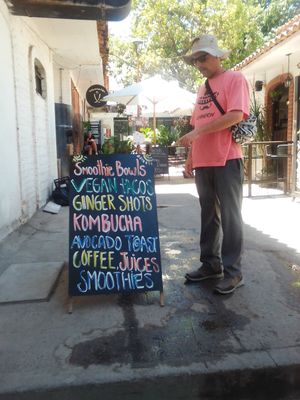 Smoothie Bowls
VEGAN TACOS
GINGER SHOTS
KOMBUCHA
AVOCADO TOAST
COFFEE, JUICES
SMOOTHIES